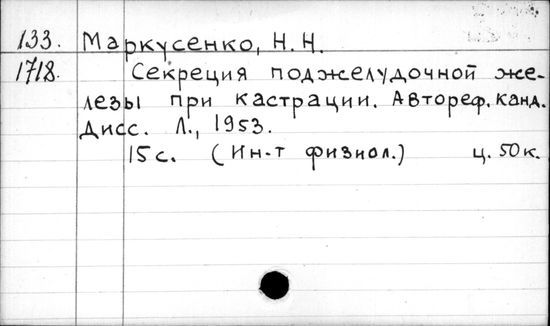 133. Маркусенко, Н. Н.
1718. Секреция поджелудочной же-
лезы при кастрации. Автореф. канд.
дисс. Л., 1953.
15 с. (Ин-т физиол.) ц. 50 к.